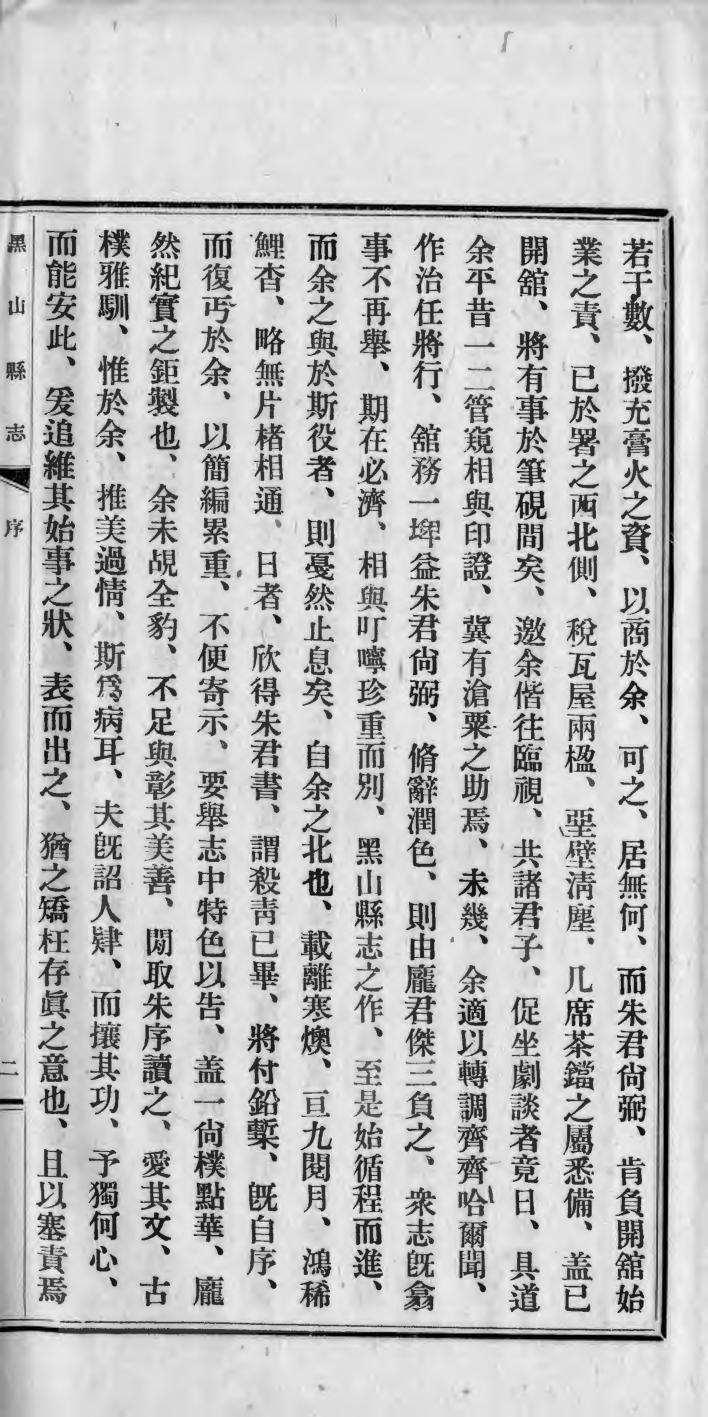 若于數、撥充膏火之資、以商於余、可之、居無何、而朱君尙弼、肯負開舘始
業之責、已於署之西北側、稅瓦屋兩楹、堊壁淸塵、几席茶鐺之屬悉備、盖已
開舘、將有事於筆硯間矣、邀余偕往臨視、共諸君子、促坐劇談者竟日、具道
余平昔一二管窺相與印證、冀有滄粟之助焉、未幾、余適以轉調齊齊哈爾聞、
作治任將行、舘務一埤益朱君尙弼、脩辭潤色、則由龐君傑三負之、衆志旣翕
事不再舉、期在必濟、相與叮嚀珍重而別、黑山縣志之作、至是始循程而進、
而余之與於斯役者、則戞然止息矣、自余之北也、載離寒燠、亘九閱月、鴻稀
鯉杳、略無片楮相通、日者、欣得朱君書、謂殺靑已畢、將付鉛槧、旣自序、
而復丐於余、以簡編累重、不便寄示、要舉志中特色以吿、盖一尙樸點華、龐
然紀實之鉅製也、余未覘全豹、不足與彰其美善、閒取朱序讀之、愛其文、古
樸雅馴、惟於余、推美過情、斯爲病耳、夫旣詔人肄、而攘其功、予獨何心、
而能安此、爰追維其始事之狀、表而出之、猶之矯枉存眞之意也、且以塞責焉
黑山縣志 序 二